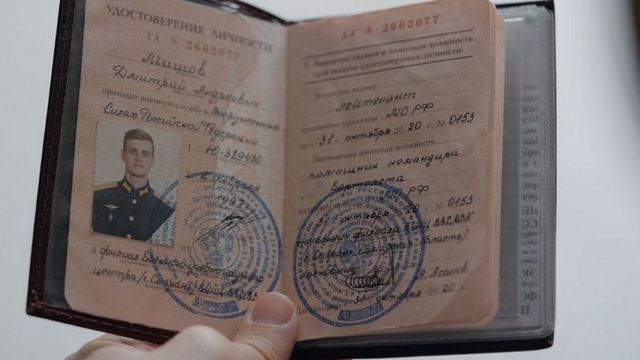 УДОСТОВЕРЕНИЕ ЛИЧНОСТИ
АА № 2662077
Мишов
Дмитрий Андреевич
проходит военную службу в Вооруженных
Силах Российской Федерации
1.
Ю-339450
2.
1997
4. филиал Военного учебно-научного
центра (г. Сызрань)
АА № 2662077
1. Воинское звание и воинская должность
при выдаче удостоверения личности
Воинское звание
лейтенант
присвоено приказом МО РФ
от « 31 » октября 2020 г. № 0153
Занимаемая воинская должность
помощник командира
вертолета
МО РФ
октября 20 20 г. № 0153
Начальник филиала
(г. Сызрань, Самарская область)
полковник
Асанов
« 31 » октября 20 20 г.